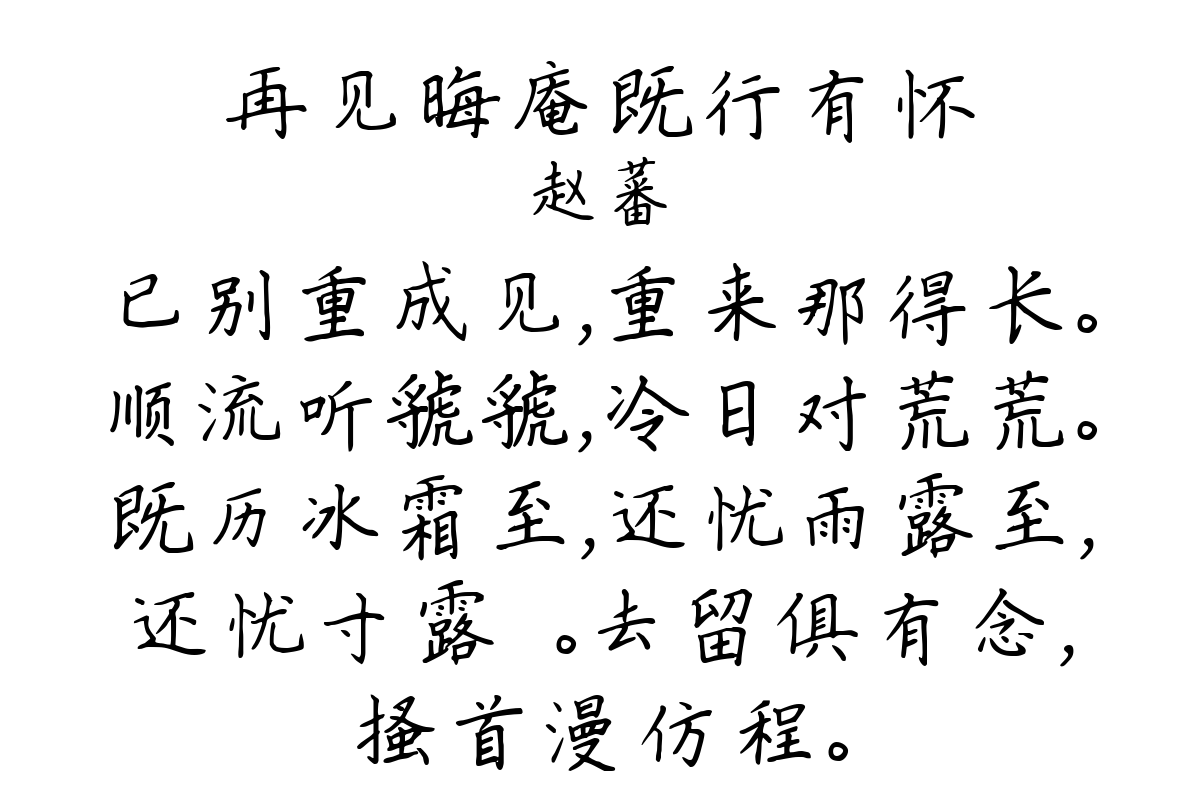 再见晦庵既行有怀
赵蕃
已别重成见,重来那得长。
顺流听虢虢,冷日对荒荒。
既历冰霜至,还忧雨露至,
还忧寸露 。去留俱有念,
搔首漫仿程。